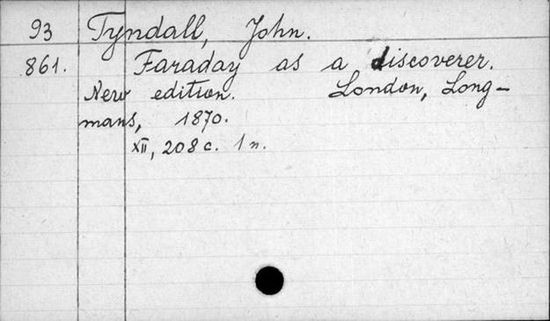 93 Tyndall, John.
861. Faraday as a discoverer.
New edition. London, Long-
mans, 1870.
XII, 208 c. 1 n.